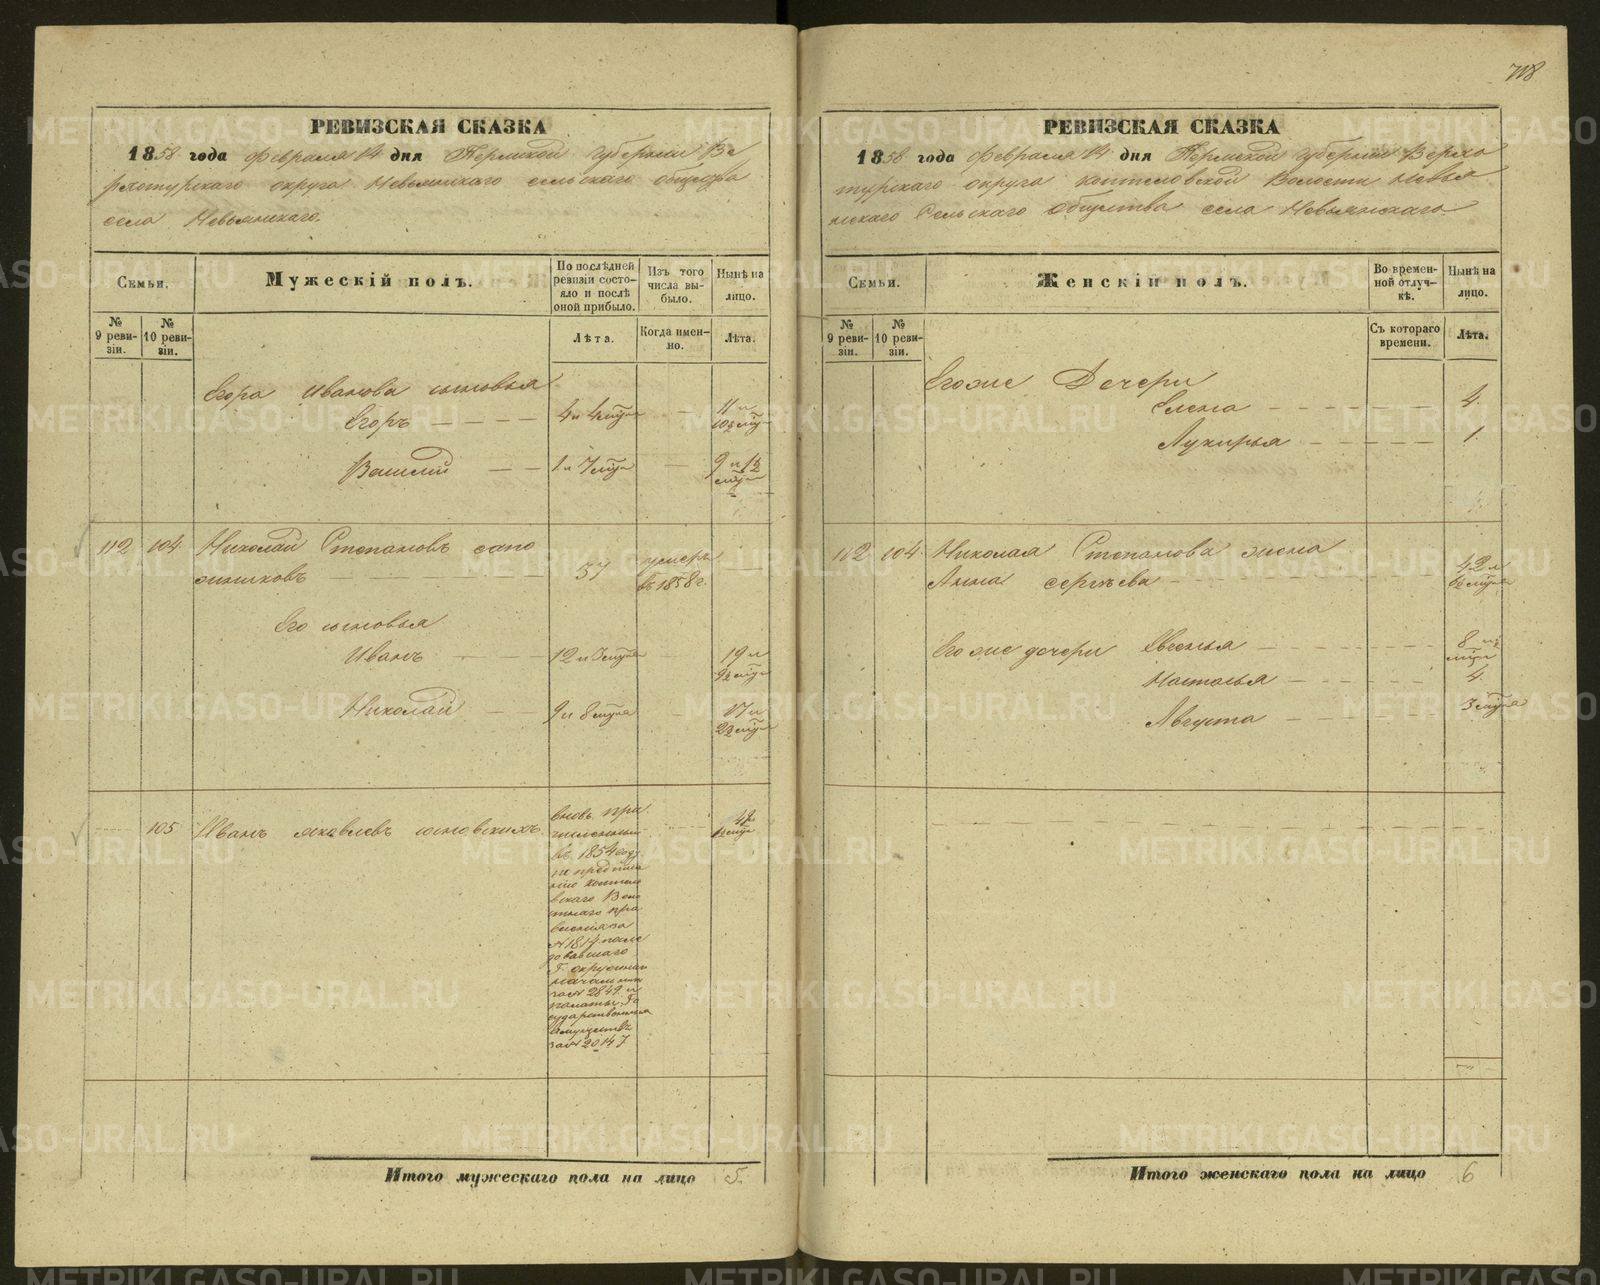 718
РЕВИЗСКАЯ СКАЗКА
1858 года Февраля 14 дня Пермской Губернии Ве
рхотурскаго округа Невьянскаго сельскаго общества
села Невьянскаго.
Семьи.
Мужескій полъ.
По послѣдней ревизіи состояло и послѣ оной прибыло.
Изъ того числа выбыло.
Нынѣ на лицо.
№ 9 ревизіи.
№ 10 ревизіи.
Лѣта.
Когда именно.
Лѣта.
Егора Иванова сыновья
Егоръ 4 и 4 мѣс 11 и
Василій 1 и 7 мѣс 9 и
112 104 Николай Степановъ сапо
жниковъ 37 умеръ
въ 1858 г
Его сыновья
Иванъ 12 и 19 и
Николай 9 и 8 17 и
105 Иванъ яковлевъ
вновь при
численный
въ 1854 году
по предписа
нію
вскаго Воло
стнаго пра
вленія за
№ 1814 после
довавшаго
Г. окружнаго
за № 2849 и
палаты Го
сударственных
имуществъ
за № 20147
Итого мужескаго пола на лицо 5.
РЕВИЗСКАЯ СКАЗКА
1858 года Февраля 14 дня Пермской Губерніи Верхо
турскаго округа Коптеловской Волости Невья
нскаго Сельскаго Общества села Невьянскаго
Семьи.
Женскій полъ.
Во временной отлучкѣ.
Нынѣ на лицо.
№ 9 ревизіи.
№ 10 ревизіи.
Съ котораго времени.
Лѣта.
Егоже Дочери
Елена 4.
Лукирья 1.
112 104 Николая Степанова жена
Анна сергѣева 42 и
Егоже дочери Евгенья 8 и
Настасья 4.
Августа 3
Итого женскаго пола на лицо 6
METRIKI.GASO-URAL.RU